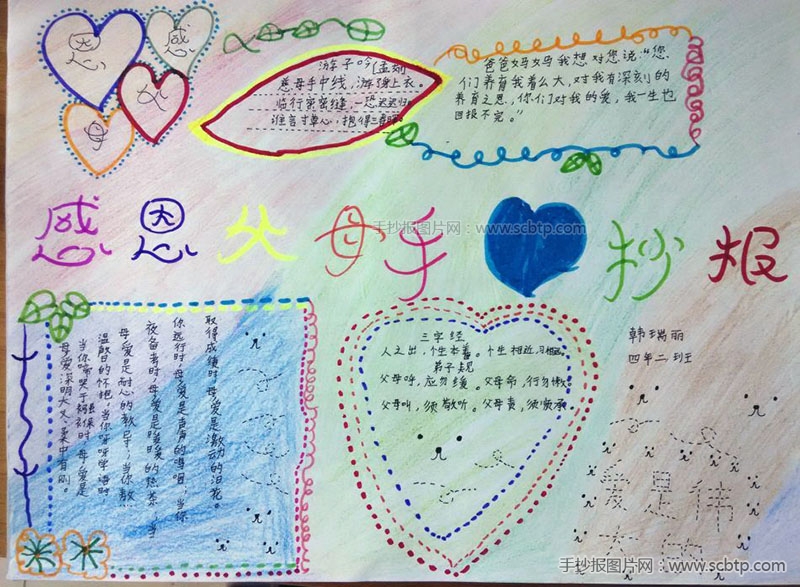 感
恩
父
母
游子吟 [孟郊]
慈母手中线，游子身上衣。
临行密密缝，
谁言寸草心，报得三春晖。
爸爸妈妈我想对您说“您
们养育我着么大，对我有深刻的
养育之恩，你们对我的爱，我一生也
回报不完。”
感恩父母手抄报
手抄报图片网：www.scbtp.com
取得成绩时，母爱是激动的泪花。
你远行时，母爱是声声的嘱咐，当你
夜备考时，母爱是暖暖的热茶，当
母爱是耐心的教导；当你
温馨的怀抱，当你呀呀学语时
当你啼哭于
母爱深明大义，柔中有刚。
三字经
人之出，个生本善。个生相近，习相远。
弟子规
父母呼，应勿缓。父母命，行勿懒
父母叫，须敬听。父母责，须顺承
韩瑞丽
四年二班
爱是伟
手抄报图片网：www.scbtp.com